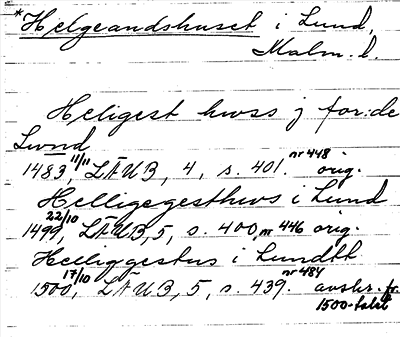 *Helgeandshuset i Lund,
Malm. l.
Heligest hwss j for:de
Lwnd
1483 11/11 LÄUB, 4, s. 401. nr 448 orig.
Helligegesthws i Lund
1499 22/10, LÄUB, 5, s. 400, nr 446 orig.
Helliggestus i Lundtt
1500 17/10, LÄUB, 5, s. 439. nr 484 avskr. fr.
1500-talet